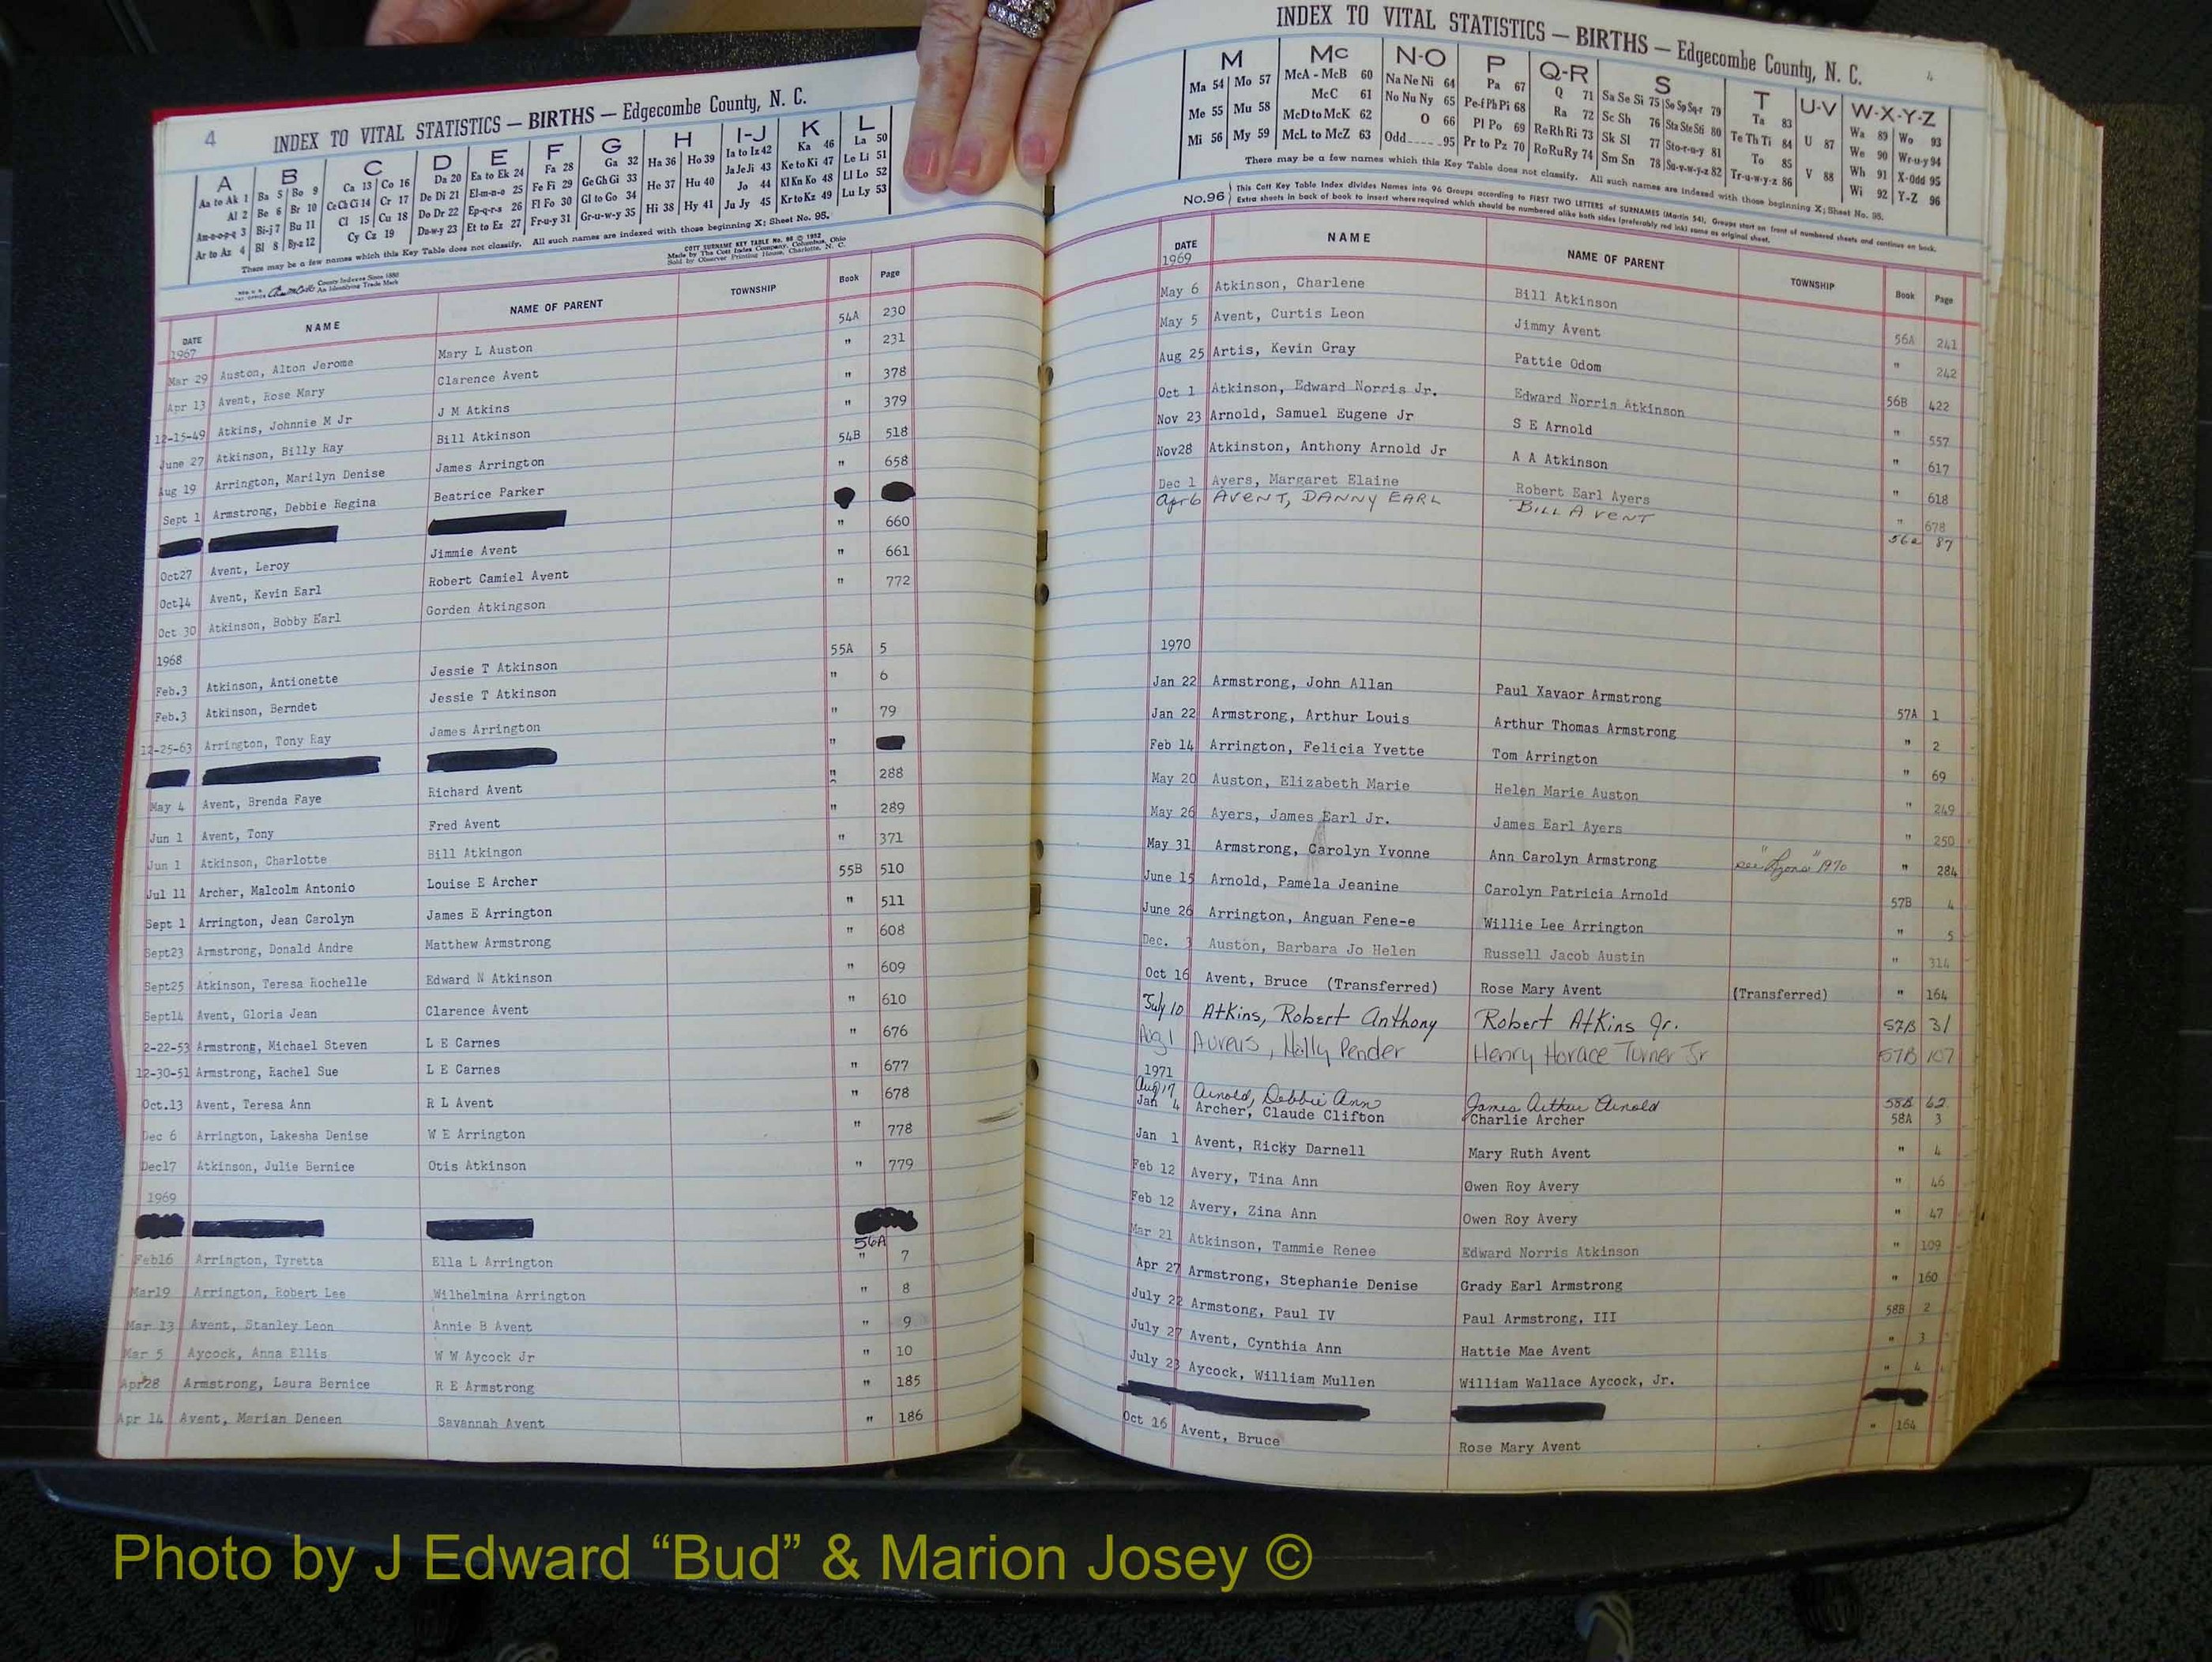 4
INDEX TO VITAL STATISTICS — BIRTHS — Edgecombe County, N. C.
A B C D E F G H I-J K L
Aa to Ak 1 Ba 5 Bo 9 Ca 13 Co 16 Da 20 Ea to Ek 24 Fa 28 Ga 32 Ha 36 Ho 39 Ia to Iz 42 Ka 46 La 50
Al 2 Be 6 Br 10 Ce Ch Ci 14 Cr 17 De Di 21 El-m-n-o 25 Fe Fi 29 Ge Gh Gi 33 He 37 Hu 40 Ja Je Ji 43 Ke to Ki 47 Le Li 51
Am-n-o-p-t 3 Bi-j 7 Bu 11 Cl 15 Cu 18 Do Dr 22 Ep-q-r-s 26 Fl Fo 30 Gl to Go 34 Hi 38 Hy 41 Jo 44 Kl Kn Ko 48 Ll Lo 52
Ar to Az 4 Bl 8 By-z 12 Cy Cz 19 Du-w-y 23 Et to Ez 27 Fr-u-y 31 Gr-u-w-y 35 Ju Jy 45 Kr to Kz 49 Lu Ly 53
There may be a few names which this Key Table does not classify. All such names are indexed with those beginning X; Sheet No. 95.
COTT SURNAME KEY TABLE No. 96 © 1952
Made by The Cott Index Company, Columbus, Ohio
Sold by Observer Printing House, Charlotte, N. C.
County Indexes Since 1888
An Identifying Trade Mark
DATE NAME NAME OF PARENT TOWNSHIP Book Page
1967
Mar 29 Auston, Alton Jerome Mary L Auston 54A 230
Apr 13 Avent, Rose Mary Clarence Avent " 231
12-15-49 Atkins, Johnnie M Jr J M Atkins " 378
June 27 Atkinson, Billy Ray Bill Atkinson " 379
Aug 19 Arrington, Marilyn Denise James Arrington 54B 518
Sept 1 Armstrong, Debbie Regina Beatrice Parker " 658
Oct27 Avent, Leroy Jimmie Avent " 660
Oct14 Avent, Kevin Earl Robert Camiel Avent " 661
Oct 30 Atkinson, Bobby Earl Gorden Atkingson " 772
1968
Feb.3 Atkinson, Antionette Jessie T Atkinson 55A 5
Feb.3 Atkinson, Berndet Jessie T Atkinson " 6
12-25-63 Arrington, Tony Ray James Arrington " 79
"
May 4 Avent, Brenda Faye Richard Avent " 288
Jun 1 Avent, Tony Fred Avent " 289
Jun 1 Atkinson, Charlotte Bill Atkingon " 371
Jul 11 Archer, Malcolm Antonio Louise E Archer 55B 510
Sept 1 Arrington, Jean Carolyn James E Arrington " 511
Sept23 Armstrong, Donald Andre Matthew Armstrong " 608
Sept25 Atkinson, Teresa Rochelle Edward N Atkinson " 609
Sept14 Avent, Gloria Jean Clarence Avent " 610
2-22-53 Armstrong, Michael Steven L E Carnes " 676
12-30-51 Armstrong, Rachel Sue L E Carnes " 677
Oct.13 Avent, Teresa Ann R L Avent " 678
Dec 6 Arrington, Lakesha Denise W E Arrington " 778
Dec17 Atkinson, Julie Bernice Otis Atkinson " 779
1969
56A
Feb16 Arrington, Tyretta Ella L Arrington " 7
Mar19 Arrington, Robert Lee Wilhelmina Arrington " 8
Mar 13 Avent, Stanley Leon Annie B Avent " 9
Mar 5 Aycock, Anna Ellis W W Aycock Jr " 10
Apr28 Armstrong, Laura Bernice R E Armstrong " 185
Apr 14 Avent, Marian Deneen Savannah Avent " 186
INDEX TO VITAL STATISTICS — BIRTHS — Edgecombe County, N. C.
4
M Mc N-O P Q-R S T U-V W-X-Y-Z
Ma 54 Mo 57 McA - McB 60 Na Ne Ni 64 Pa 67 Q 71 Sa Se Si 75 So Sp Sq-r 79 Ta 83 U 87 Wa 89 Wo 93
Me 55 Mu 58 McC 61 No Nu Ny 65 Pe-f Ph Pi 68 Ra 72 Sc Sh 76 Sta Ste Sti 80 Te Th Ti 84 V 88 We 90 Wr-u-y 94
Mi 56 My 59 McD to McK 62 O 66 Pl Po 69 Re Rh Ri 73 Sk Sl 77 Sto-r-u-y 81 To 85 Wh 91 X-Odd 95
McL to McZ 63 Odd 95 Pr to Pz 70 Ro Ru Ry 74 Sm Sn 78 Su-v-w-y-z 82 Tr-u-w-y-z 86 Wi 92 Y-Z 96
There may be a few names which this Key Table does not classify. All such names are indexed with those beginning X; Sheet No. 95.
No. 96 This Cott Key Table Index divides Names into 96 Groups according to FIRST TWO LETTERS of SURNAMES (Martin 54). Groups start on front of numbered sheets and continue on back.
Extra sheets in back of book to insert where required which should be numbered alike both sides (preferably red ink) same as original sheet.
DATE NAME NAME OF PARENT TOWNSHIP Book Page
1969
May 6 Atkinson, Charlene Bill Atkinson 56A 241
May 5 Avent, Curtis Leon Jimmy Avent " 242
Aug 25 Artis, Kevin Gray Pattie Odom 56B 422
Oct 1 Atkinson, Edward Norris Jr. Edward Norris Atkinson " 557
Nov 23 Arnold, Samuel Eugene Jr S E Arnold " 617
Nov28 Atkinston, Anthony Arnold Jr A A Atkinson " 618
Dec 1 Ayers, Margaret Elaine Robert Earl Ayers " 678
Apr 6 AVENT, DANNY EARL BILL AVENT 56a 87
1970
Jan 22 Armstrong, John Allan Paul Xavaor Armstrong 57A 1
Jan 22 Armstrong, Arthur Louis Arthur Thomas Armstrong " 2
Feb 14 Arrington, Felicia Yvette Tom Arrington " 69
May 20 Auston, Elizabeth Marie Helen Marie Auston " 249
May 26 Ayers, James Earl Jr. James Earl Ayers " 250
May 31 Armstrong, Carolyn Yvonne Ann Carolyn Armstrong see "Lyons" 1970 " 284
June 15 Arnold, Pamela Jeanine Carolyn Patricia Arnold 57B 4
June 26 Arrington, Anguan Fene-e Willie Lee Arrington " 5
Dec. 3 Auston, Barbara Jo Helen Russell Jacob Austin " 314
Oct 16 Avent, Bruce (Transferred) Rose Mary Avent (Transferred) " 164
July 10 Atkins, Robert Anthony Robert Atkins Jr. 57B 31
Aug 1 Pender Henry Horace Turner Jr 57B 107
1971
Aug 17 Arnold, Debbie Ann James Arthur Arnold 58B 62
Jan 4 Archer, Claude Clifton Charlie Archer 58A 3
Jan 1 Avent, Ricky Darnell Mary Ruth Avent " 4
Feb 12 Avery, Tina Ann Owen Roy Avery " 46
Feb 12 Avery, Zina Ann Owen Roy Avery " 47
Mar 21 Atkinson, Tammie Renee Edward Norris Atkinson " 109
Apr 27 Armstrong, Stephanie Denise Grady Earl Armstrong " 160
July 22 Armstong, Paul IV Paul Armstrong, III 58B 2
July 27 Avent, Cynthia Ann Hattie Mae Avent " 3
July 23 Aycock, William Mullen William Wallace Aycock, Jr. " 4
Oct 16 Avent, Bruce Rose Mary Avent " 164
Photo by J Edward “Bud” & Marion Josey ©